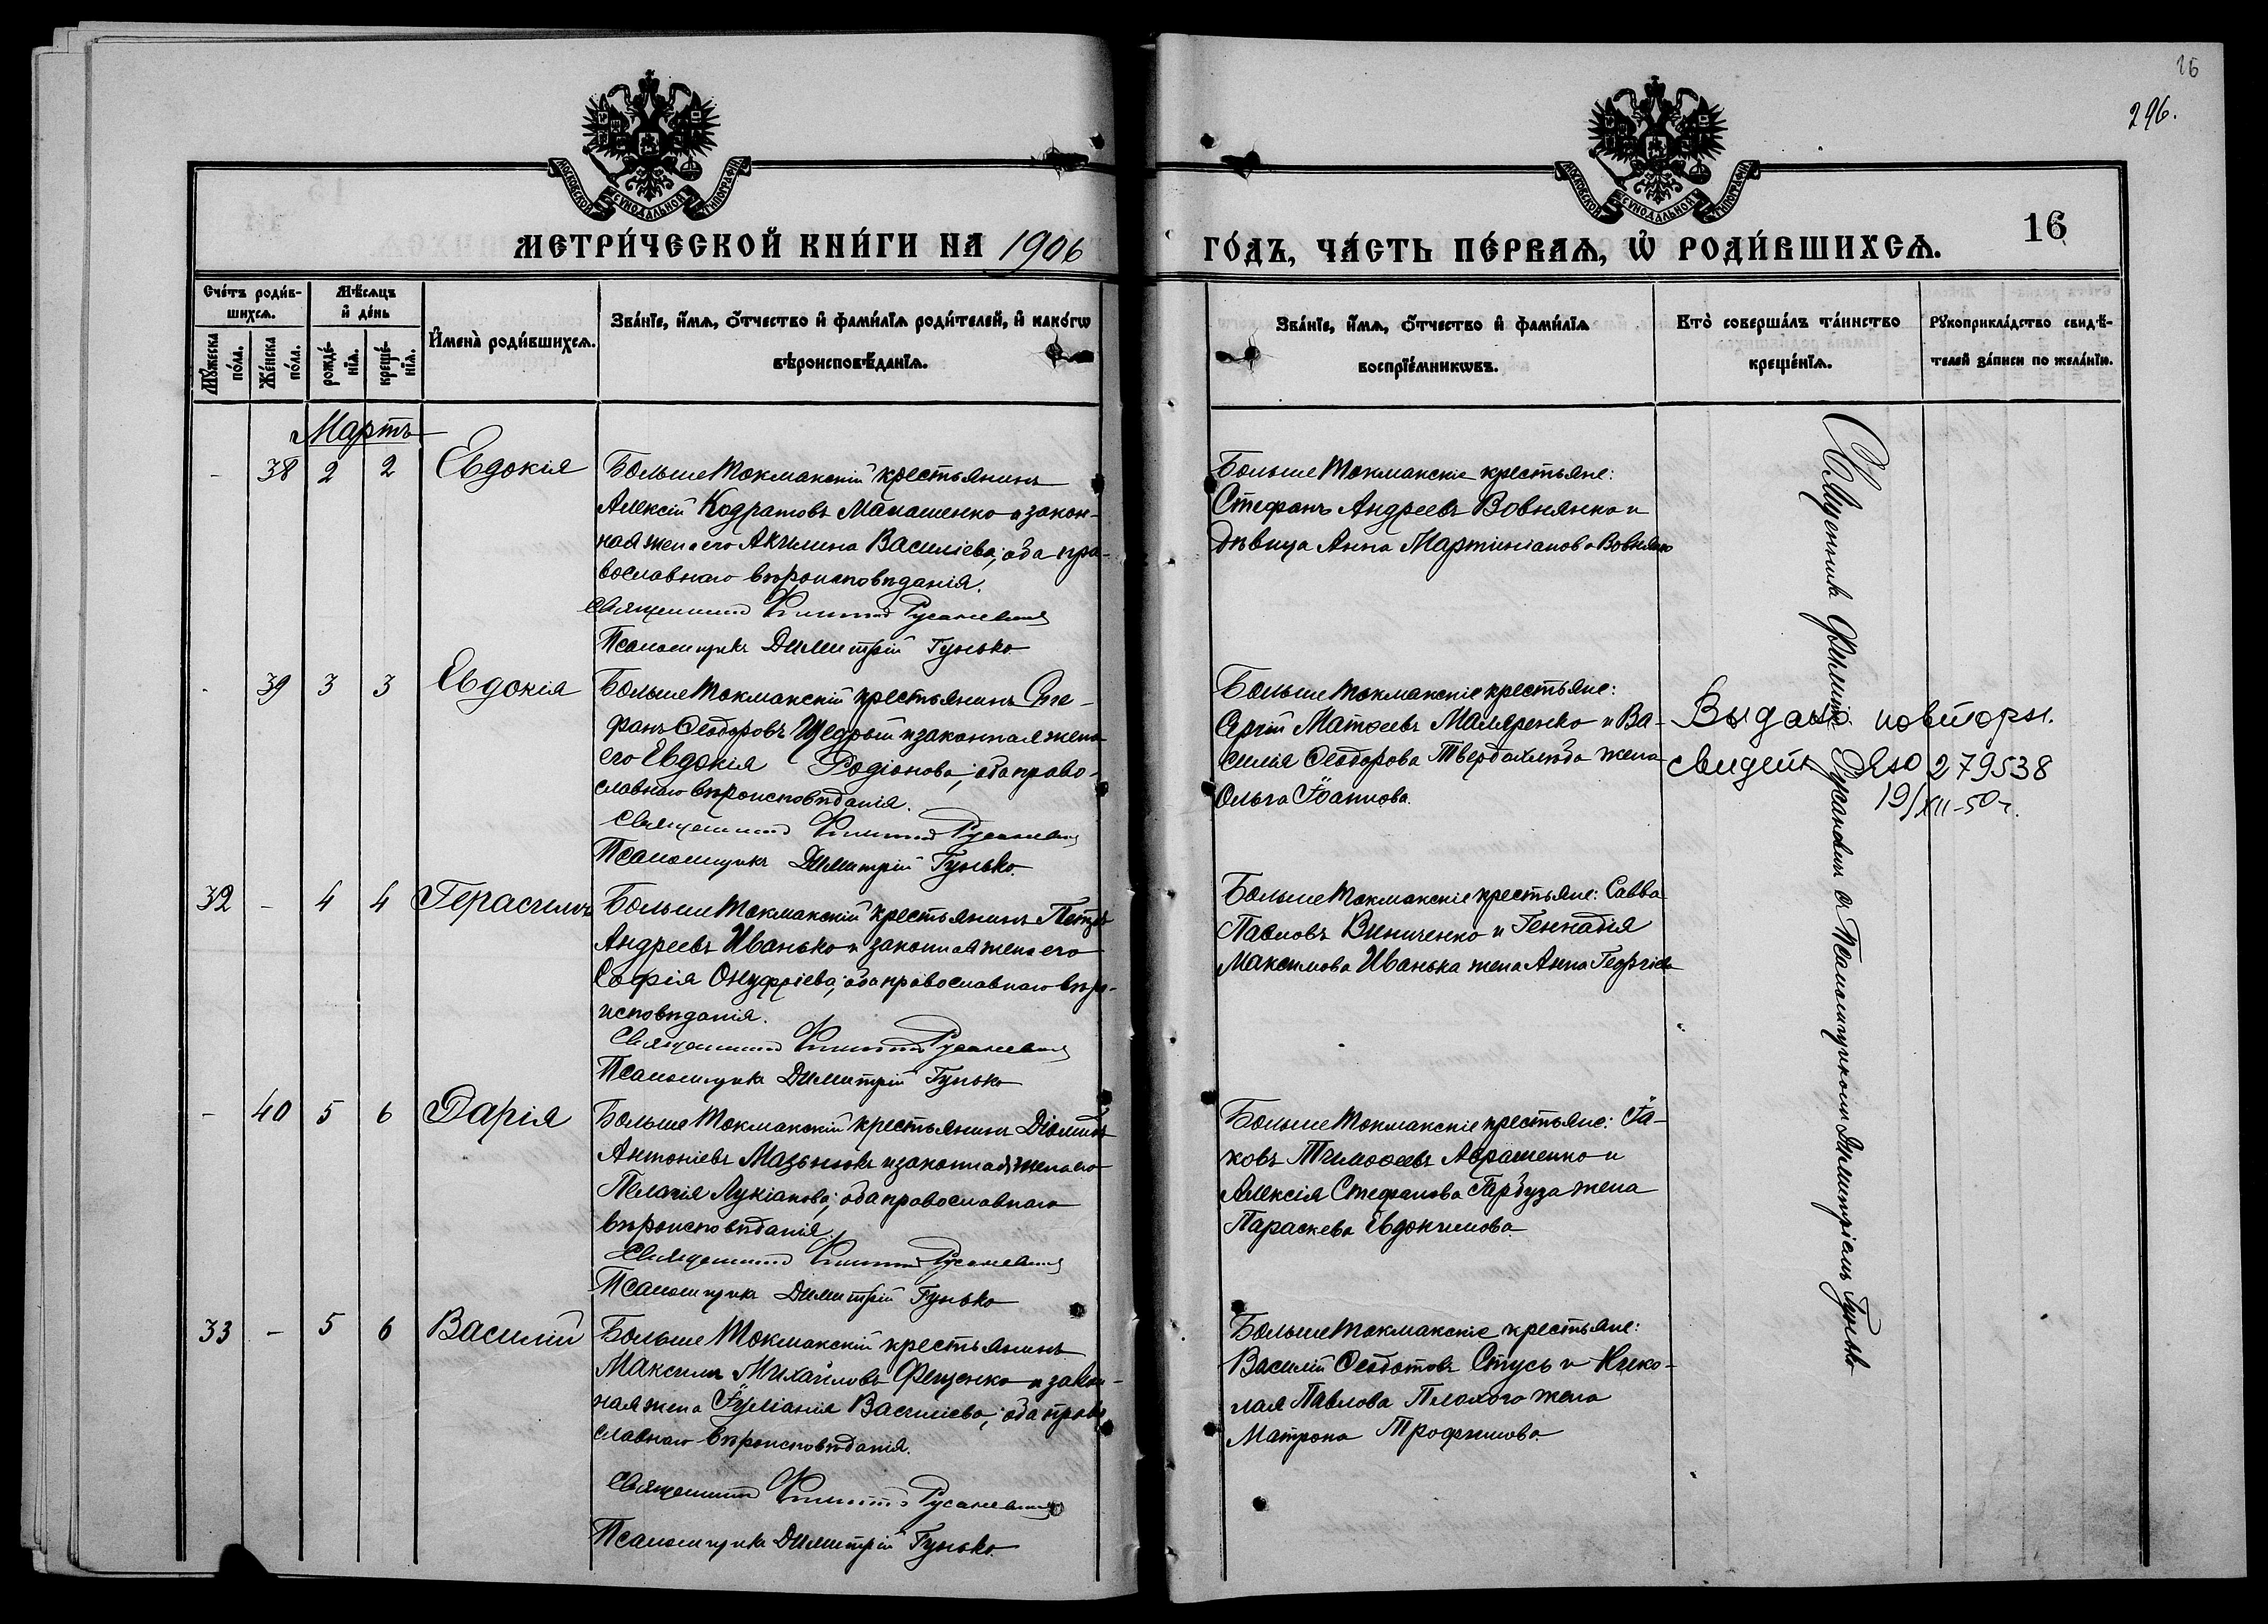 16
296.
МОСКОВСКОЙ СѴНОДАЛЬНОЙ ТИПОГРАФІИ
МОСКОВСКОЙ СѴНОДАЛЬНОЙ ТИПОГРАФІИ
МЕТРИ́ЧЕСКОЙ КНИ́ГИ НА 1906
ГО́ДЪ, ЧА́СТЬ ПЕ́РВАѦ, Ѡ҆ РОДИ́ВШИХСѦ.
16
Сче́тъ роди́в-
шихсѧ.
Мꙋ́жеска по́ла.
Же́нска по́ла.
Мѣ́сѧцъ и҆ де́нь
рожде́-
нїѧ.
креще́-
нїѧ.
И҆мена̀ роди́вшихсѧ.
Зва́нїе, и҆́мѧ, ѻ҆́тчество и҆ фами́лїѧ роди́телей, и҆ како́гѡ
вѣроисповѣ́данїѧ.
Зва́нїе, и҆́мѧ, ѻ҆́тчество и҆ фами́лїѧ
воспрїе́мникѡвъ.
Кто̀ соверша́лъ та́инство
креще́нїѧ.
Рꙋкоприкла́дство свидѣ́-
телей за́писи по жела́нїю.
Мартъ
- 38 2 2 Евдокія
БольшеТокмакскій крестьянинъ
Алексій Кодратовъ Манашенко и закон-
ная жена его Акилина Василіева; оба пра-
вославнаго вѣроисповѣданія.
Священникъ Филиппъ Русаневичъ
Псаломщикъ Димитрій Гунько
БольшеТокмакскіе крестьяне:
Стефанъ Андреевъ Вовнянко и
дѣвица Анна Мартиніанова Вовнянко
- 39 3 3 Евдокія
БольшеТокмакскій крестьянинъ Сте-
фанъ Ѳеодоровъ Щедрый и законная жена
его Евдокія Родіонова; оба право-
славнаго вѣроисповѣданія.
Священникъ Филиппъ Русаневичъ
Псаломщикъ Димитрій Гунько.
БольшеТокмакскіе крестьяне:
Сергій Матѳеевъ Маляренко и Ва-
силія Ѳеодорова Твердохлѣба жена
Ольга Іоаннова.
Выдано повторн.
свидет ЯЮ 279538
19/XII-50г.
32 - 4 4 Герасимъ
БольшеТокмакскій крестьянинъ Петръ
Андреевъ Иванько и законная жена его
Софія Онуфріева; оба православнаго вѣро-
исповѣданія.
Священникъ Филиппъ Русаневичъ
Псаломщикъ Димитрій Гунько
БольшеТокмакскіе крестьяне: Савва
Павловъ Виниченко и Геннадія
Максимова Иванька жена Анна Георгіева
- 40 5 6 Дарія
БольшеТокмакскій крестьянинъ Діомидъ
Антоніевъ и законная жена его
Пелагія Лукіанова; оба православнаго
вѣроисповѣданія.
Священникъ Филиппъ Русаневичъ
Псаломщикъ Димитрій Гунько
БольшеТокмакскіе крестьяне: Іа-
ковъ Тимоѳеевъ Аврашенко и
Алексія Стефанова Гарбуза жена
Параскева Евдокимова.
33 - 5 6 Василій
БольшеТокмакскій крестьянинъ
Максимъ Михайловъ Фещенко и закон-
ная жена Іуліанія Василіева; оба право
славнаго вѣроисповѣданія.
Священникъ Филиппъ Русаневичъ
Псаломщикъ Димитрій Гунько.
БольшеТокмакскіе крестьяне:
Василій Ѳеодотовъ Стусь и Нико-
лая Павлова Плохого жена
Матрона Трофимова.
Священникъ Филиппъ Русаневичъ съ Псаломщикомъ Димитріемъ Гунько